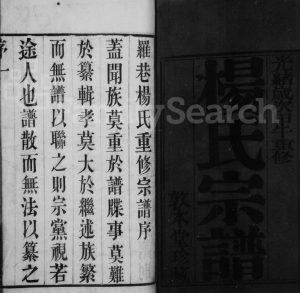 重修
楊氏宗譜
敦本堂
羅巷楊氏重修宗譜序
蓋聞族莫重於譜牒事莫難
於纂輯孝莫大於繼述族繁
而無譜以聯之則宗黨視若
途人也譜散而無法以纂之
序一